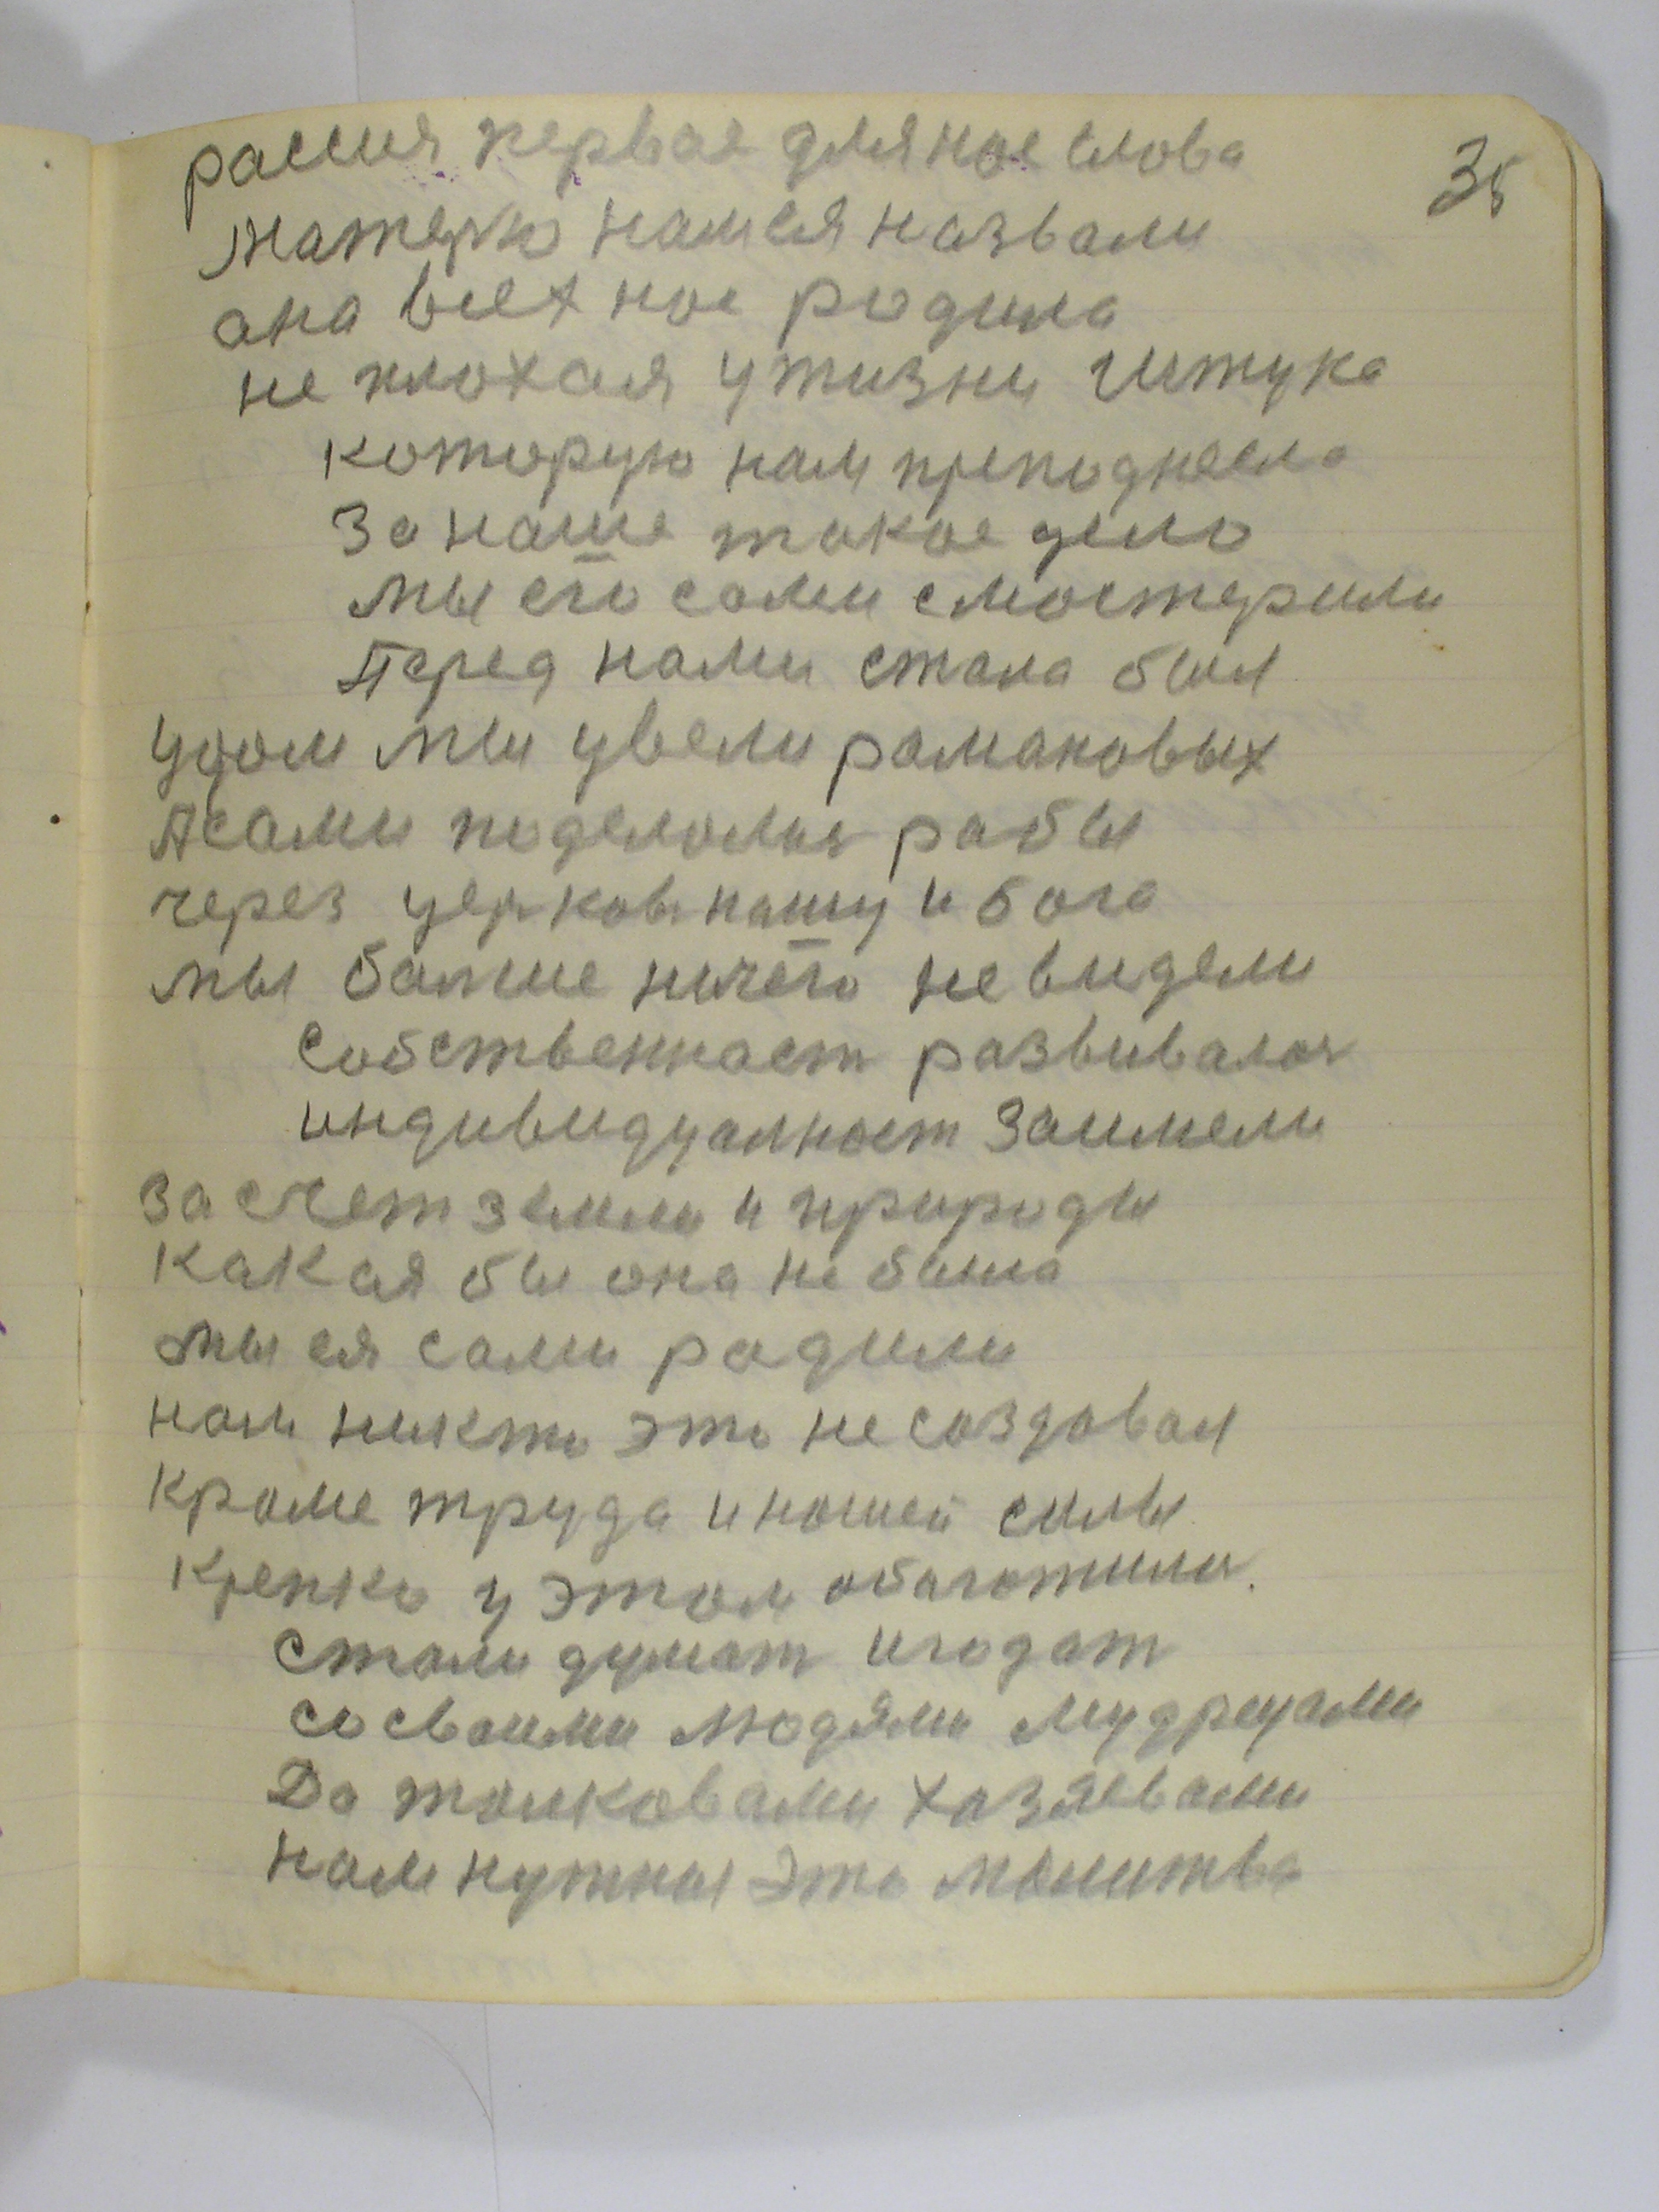 35
расия первае для нас слова
матерю нам ея назвали
она всех нас родила
не плохая у жизни штука
которую нам преподнесла
За наше такое дело
мы его сами смостерили
Перед нами стала была
удом мы увели рамановых
А сами поделолися рабы
через церков нашу и бога
мы балше ничего не видели
Собственност развивалас
индивидуалност Заимели
За счет земли и природы
Какая бы она не была
мы ея сами радили
нам никто это не создавал
Кроме труда и нашей силы
Крепко у этом абагатилис
стали думат и гадат
со своими людями мудрецами
Да толковами хазяевами
Нам нужны это молитва